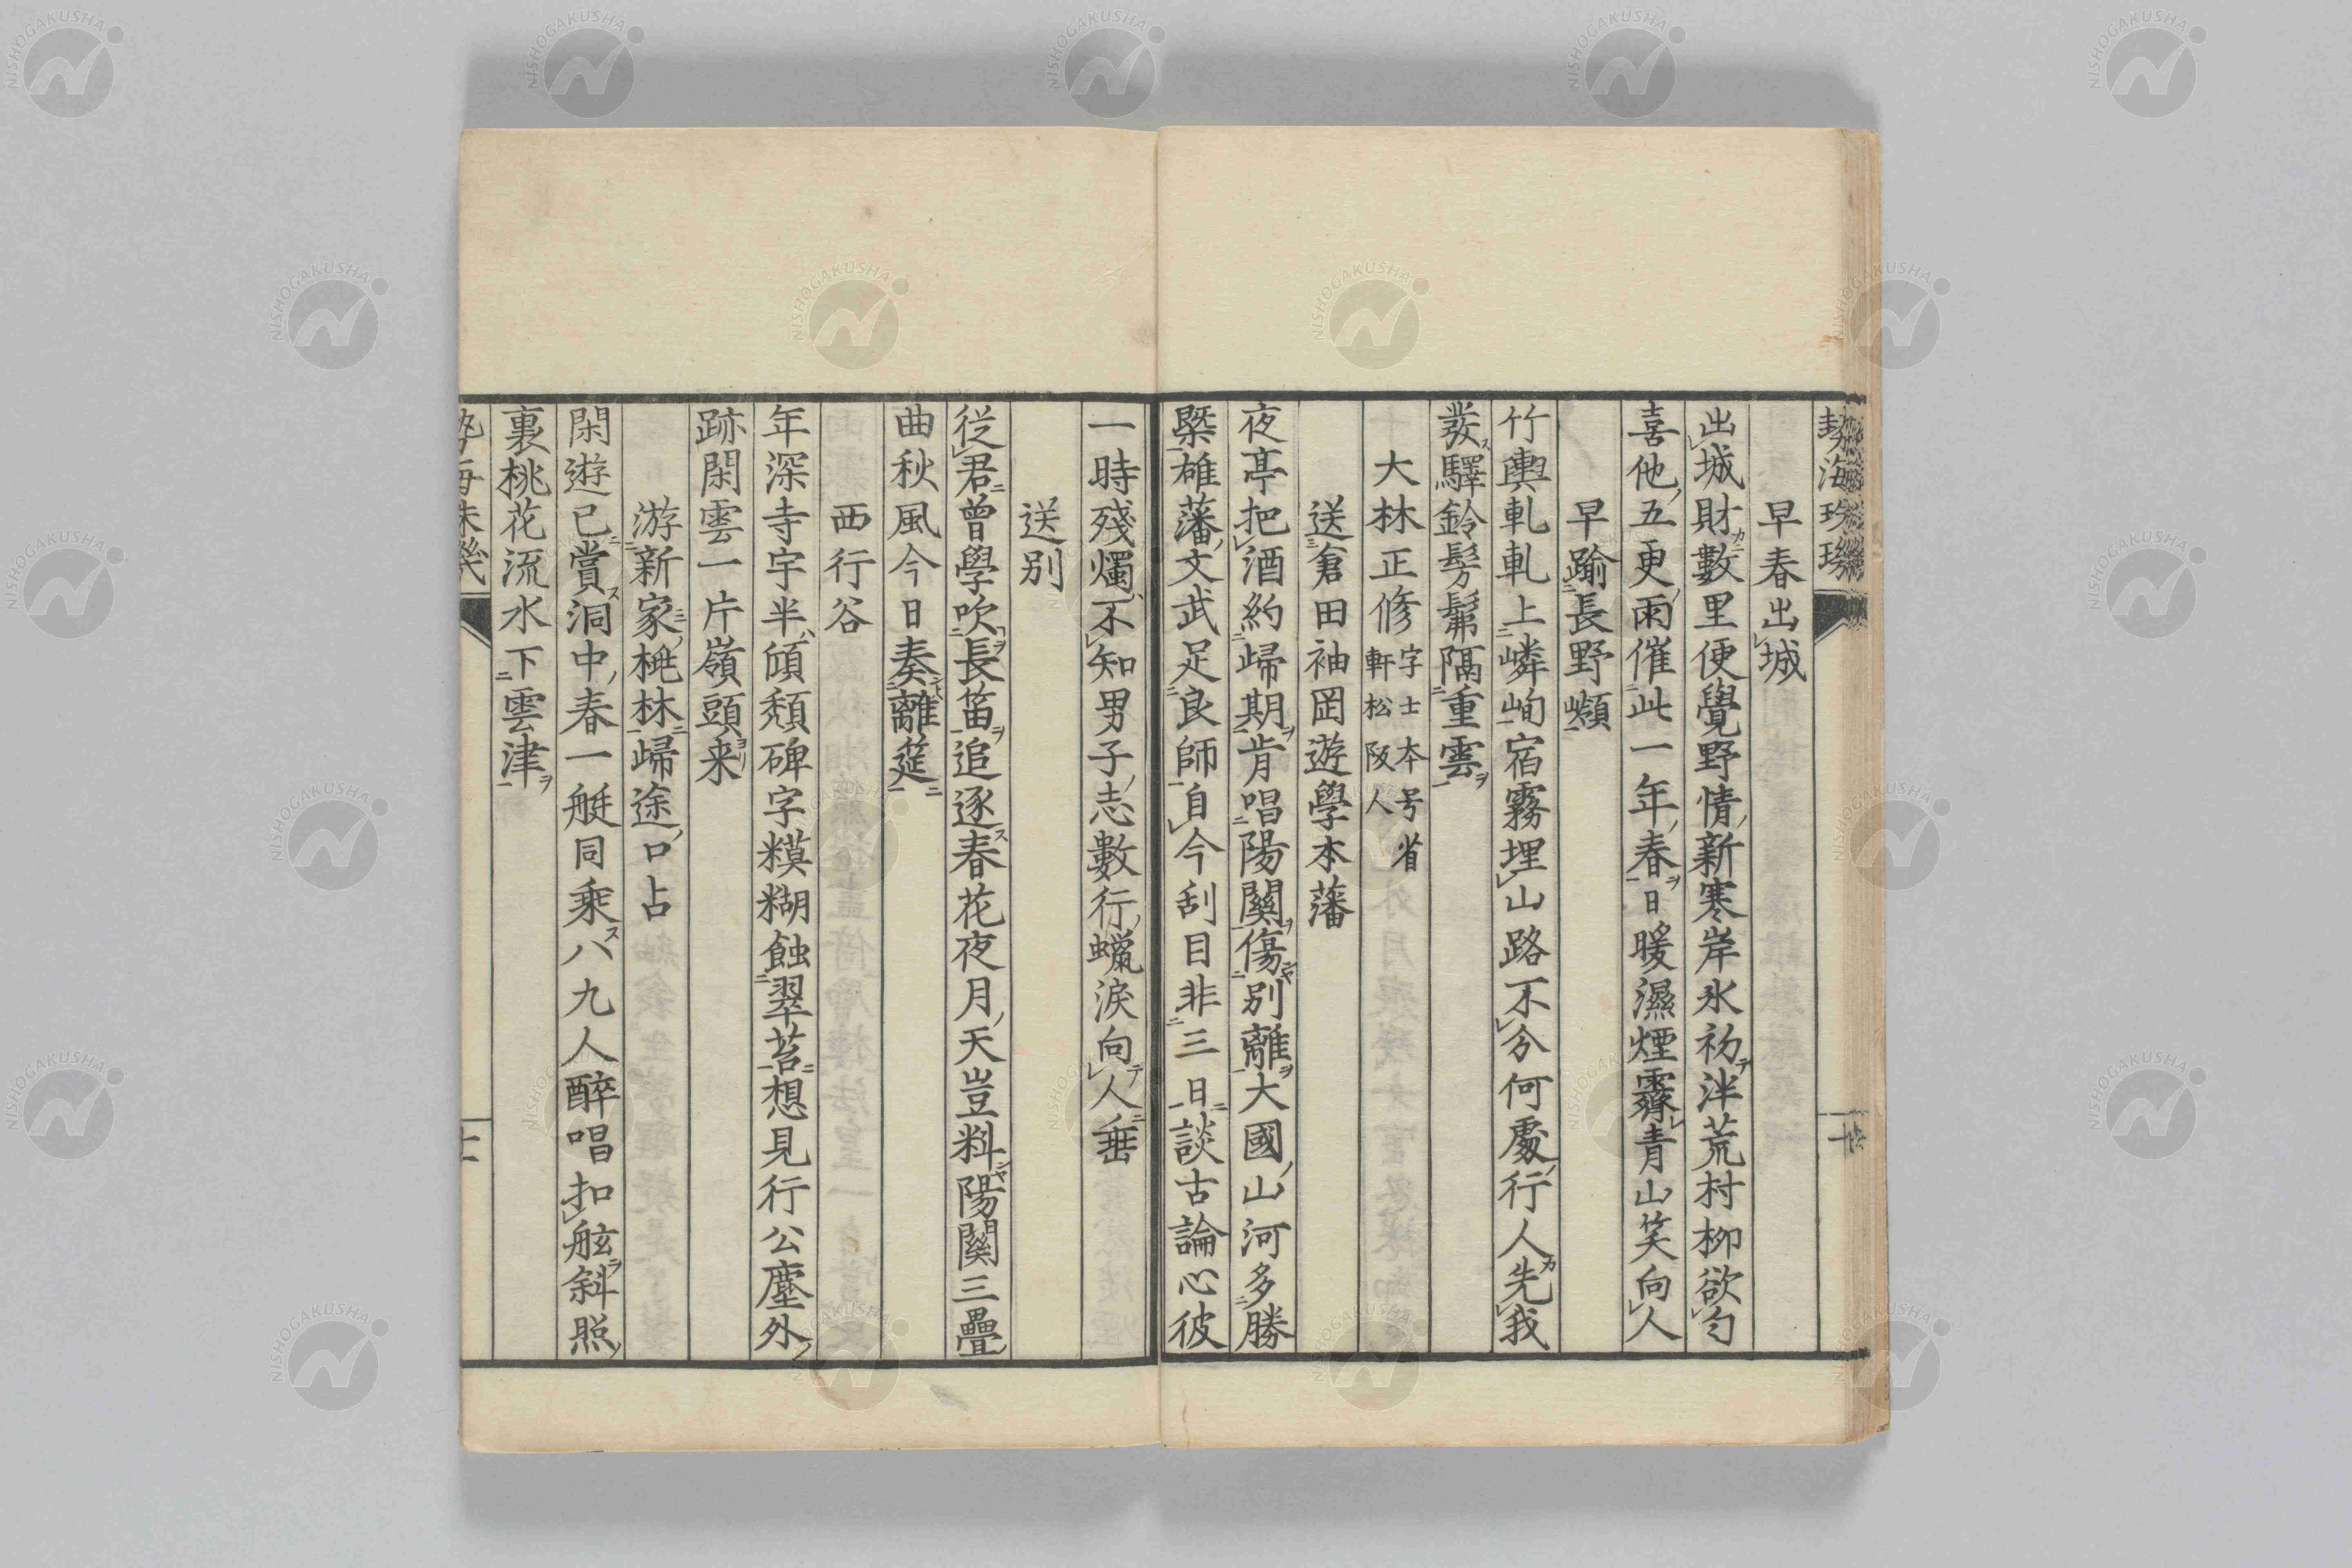 勢海珠璣
早春出城
出城財數里便覺野情新寒岸氷初泮荒村柳欲勻
喜他五更雨催此一年春日暖濕煙霽青山笑向人
早踰長野嶺
竹輿軋軋上嶙峋宿霧埋山路不分何處行人先我
發驛鈴髣髴隔重雲
大林正修字士本号省軒松阪人
送倉田袖岡遊學本藩
夜亭把酒約歸期肯唱陽關傷別離大國山河多勝
槩雄藩文武足良師自今刮目非三日談古論心彼
一時殘燭不知男子志數行蠟淚向人垂
送別
從君曾學吹長笛追逐春花夜月天豈料陽關三疊
曲秋風今日奏離筵
西行谷
年深寺宇半傾頽碑字糢糊蝕翠苔想見行公塵外
跡閑雲一片嶺頭来
游新家桃林歸途口占
閑遊已賞洞中春一艇同乘八九人醉唱扣舷斜照
裏桃花流水下雲津
勢海珠璣
NISHOGAKUSHA